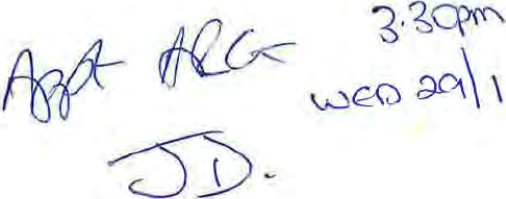 Appt ARG 3.30pm
WED 29/1
JD.